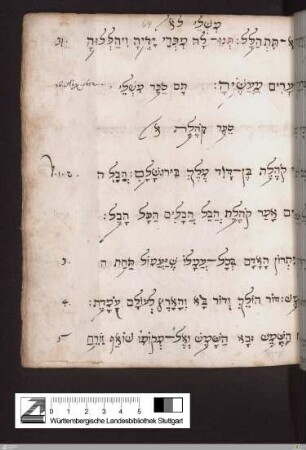 משלי לא
31. תתהלל: תנו־לה מפרי ידיה ויהללוה
מעשיה: תם ספר משלי
ספר קהלת א
1.2. קהלת בן־דוד מלך בירושלם: הבל ה
אמר קהלת הבל הבלים הכל הבל:
3. יתרון האדם בכל־עמלו שיעמול תחת ה
4. דור הולך ודור בא והארץ לעולם עמדת:
5 השמש ובא השמש ואל־מקומו שואף זורח
0 1 2 3 4 5
Württembergische Landesbibliothek Stuttgart